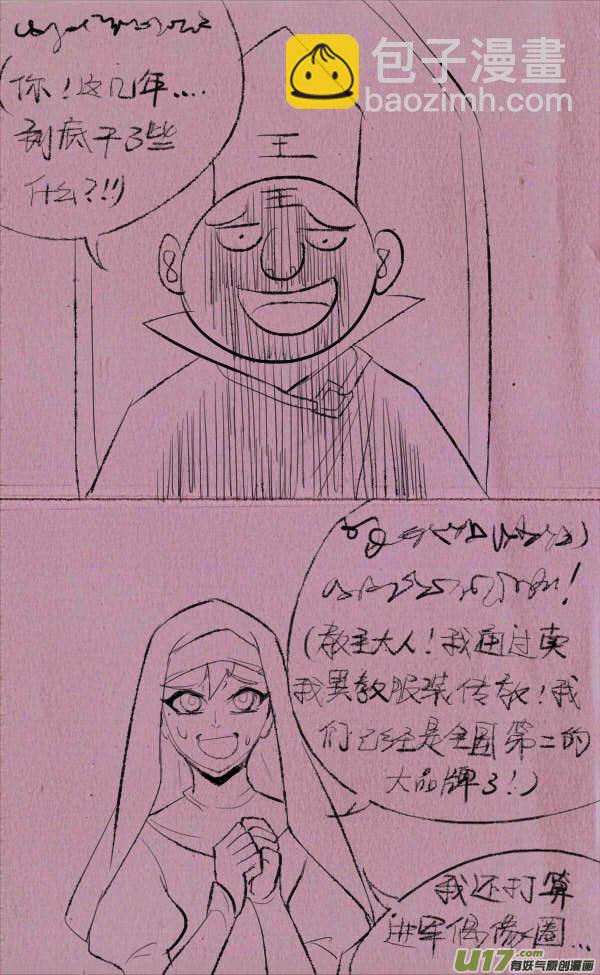 包子漫畫
baozimh.com
(你！这几年....
到底干了些
什么?!!)
王
王
(教主大人！我通过卖
我異教服装传教！我
们已经是全国第二的
大品牌了！)
我还打算
进军偶像圈...
U17.com
有妖气原创漫画